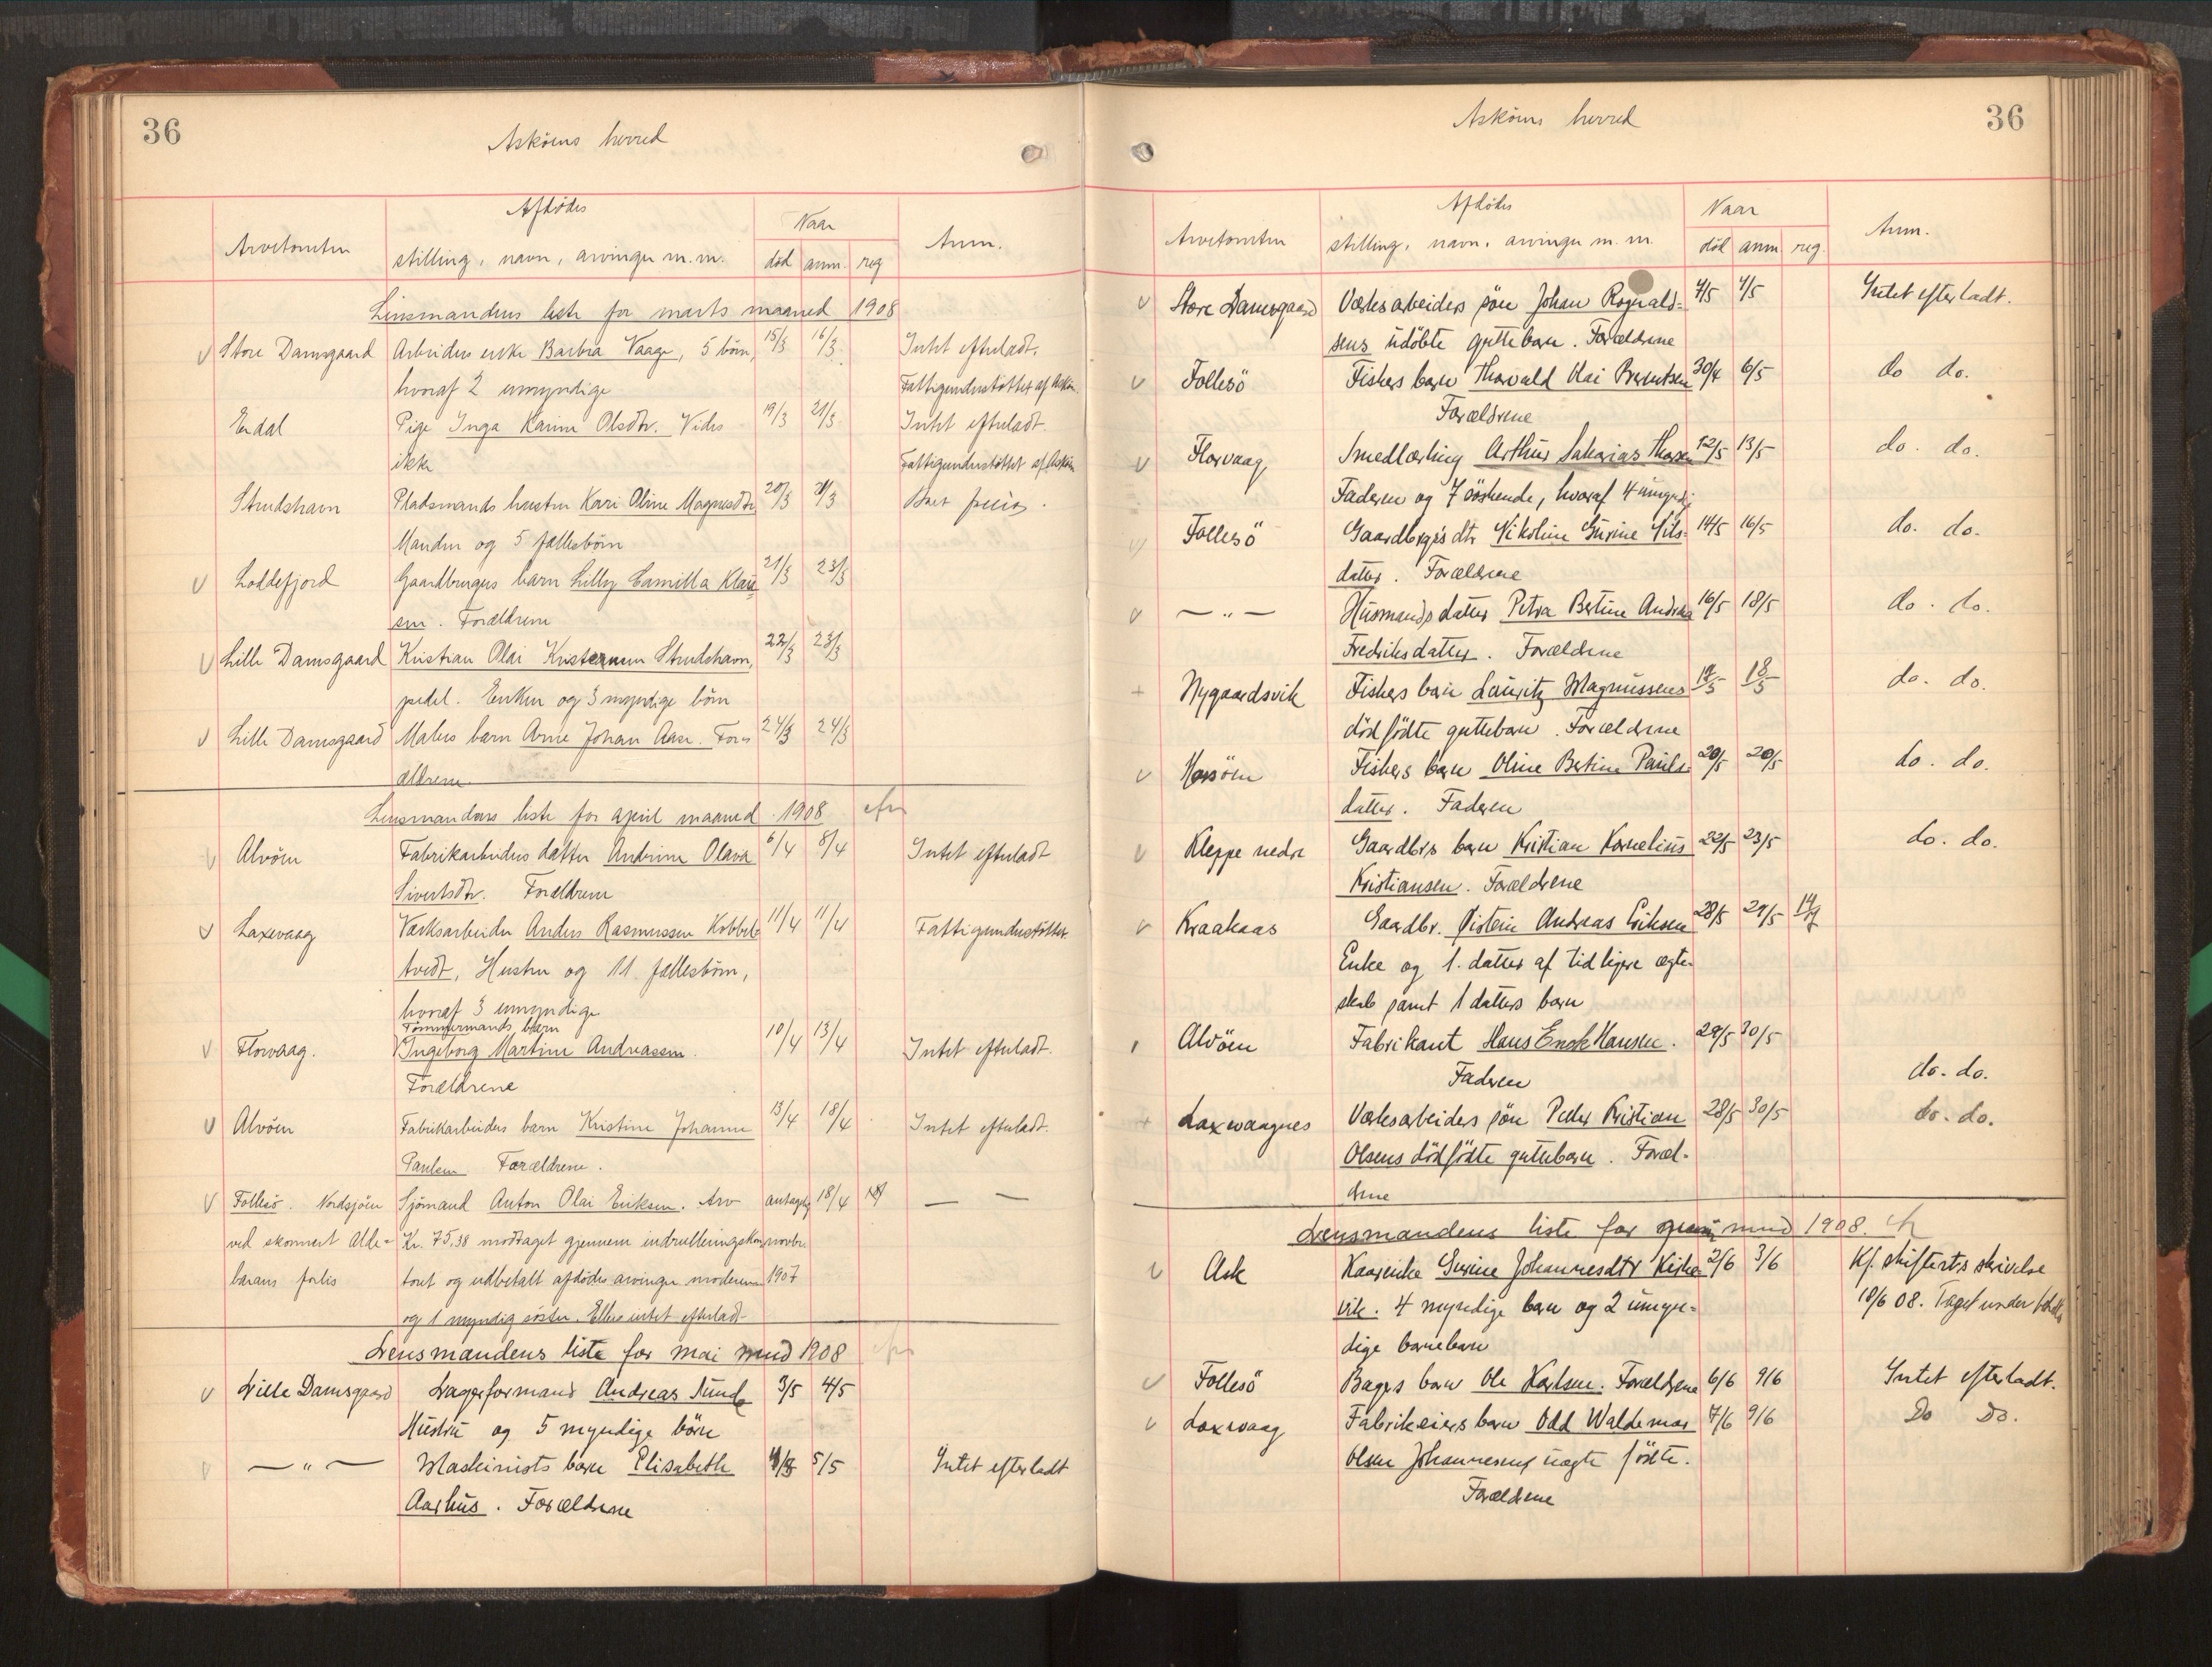 36
Askøens herred
Arvetomten
Afdødes
stilling, navn, arvinger m.m.
Naar
død anm. reg
Anm.
Lensmandens liste for marts maaned 1908
Store Damsgaard Arbeiders enke Barbra Vaage, 5 børn, 15/3 16/3 Intet efterladt.
hvoraf 2 umyndige Fattigunderstøttet af Askøen
Erdal Pige Inga Karine Olsdtr. Vides 19/3 21/3 Intet efterladt.
ikke Fattigunderstøttet af Askøen
Strudshavn Pladsmands hustru Kari Oline Magnesdtr 20/3 21/3
Manden og 5 fællesbørn
Loddefjord Gaardbrugers barn Lilly Camilla Klau 21/3 23/3
sen. Forældrene
Lille Damsgaard Kristian Olai Kristensen Strudshavn, 22/3 23/3
pedel. Enken og 3 myndige børn
Lille Damsgaard Malers barn Arne Johan Aase. For 24/3 24/3
ældrene
Lensmandens liste for april maaned 1908
Alvøen Fabrikarbeiders datter Andrine Olava 6/4 8/4 Intet efterladt
Sivertsdtr. Forældrene
Laxevaag Værksarbeider Anders Rasmussen Kobbel 11/4 11/4 Fattigunderstøttet
tvedt, Hustru og 11 fællesbørn,
hvoraf 3 umyndige
Tømmermands barn
Florvaag. Ingeborg Martine Andreassen. 10/4 13/4 Intet efterladt.
Forældrene
Alvøen Fabrikarbeiders barn Kristine Johanne 13/4 18/4 Intet efterladt.
Paulsen Forældrene.
Follesø. Nordsjøen Sjømand Anton Olai Eriksen. Arv antagelig 18/4 — —
ved skonnert Alde- Kr. 75,38 modtaget gjennem indrulleringskon novbr.
barans forlis toret og udbetalt afdødes arvinger moderen 1907
og 1 myndig søster. Ellers intet efterladt
Lensmandens liste for mai mnd 1908
Lille Damsgaard Lagerformand Andreas Lunde 3/5 4/5
Hustru og 5 myndige børn
— " — Maskinists barn Elisabeth 4/5 5/5 Intet efterladt
Aarhus. Forældrene
36
Askøens herred
Arvetomten
Afdødes
stilling, navn, arvinger m.m.
Naar
død anm. reg.
Anm.
Store Damsgaard Værksarbeiders søn Johan Rognald- 4/5 4/5 Intet efterladt.
sens udøbte guttebarn. Forældrene
Follesø Fishers barn Thorvald Olai Berntsen 30/4 6/5 do do.
Forældrene
Florvaag Smedlærling Arthur Sakarias Thorsen 12/5 13/5 do. do.
Faderen og 7 søskende, hvoraf 4 umyndig
Follesø Gaardbrgrs dtr Nikoline Gurine Nils- 14/5 16/5 do. do.
datter. Forældrene
— " — Husmands datter Petra Bertine Andrea 16/5 18/5 do. do.
Fredriksdatter. Forældrene
Nygaardsvik Fishers barn Lauritz Magnussens 17/5 18/5 do. do.
død fødte guttebarn. Forældrene
Hersøen Fishers barn Oline Bertine Pauls- 20/5 20/5 do. do.
datter. Faderen
Kleppe nedre Gaardbrs barn Kristian Kornelius 22/5 23/5 do. do.
Kristiansen. Forældrene
Kraakaas Gaardbr. Øistein Andreas Eriksen 28/5 29/5 14/7
Enke og 1. datter af tidligere ægte-
skab samt 1 datters barn
Alvøen Fabrikant Hans Enok Hansen. 29/5 30/5
Faderen do. do.
Laxevaagnes Værksarbeiders søn Peder Kristian 28/5 30/5 do. do.
Olsens dødfødte guttebarn. Foræl-
drene
Lensmandens liste for juni mnd 1908.
Ask Kaarenke Gurine Johannesdtr Kirke 2/6 3/6 Kf. skifterts skrivelse
vik. 4 myndige barn og 2 umyn- 10/6 08. Taget under behdl
dige barnebarn
Follesø Bagers barn Ole Karlsen. Forældrene 6/6 9/6 Intet efterladt.
Laxevaag Fabrikeiers barn Odd Waldemar 7/6 9/6 Do Do.
Olsen Johannesens uægte fødte.
Forældrene